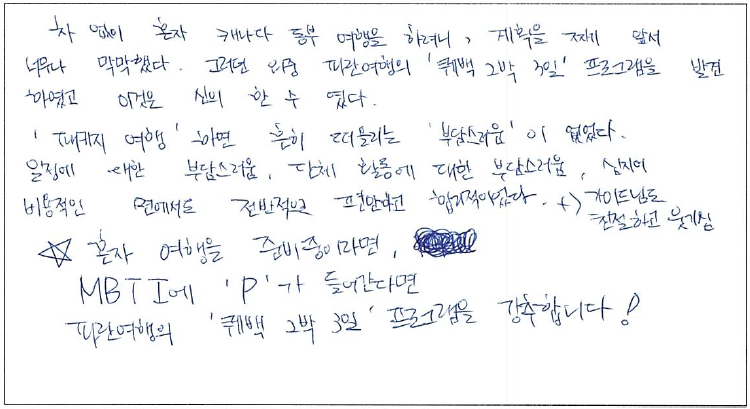 차 없이 혼자 캐나다 동부 여행을 하려니, 계획을 짜기 앞서
너무나 막막했다. 그러던 와중 파란여행의 '퀘백 2박 3일' 프로그램을 발견
하였고 이것은 신의 한 수 였다.
'패키지 여행' 하면 흔히 떠올리는 '부담스러움'이 없었다.
일정에 대한 부담스러움, 단체 활동에 대한 부담스러움, 심지어
비용적인 면에서도 전반적으로 편안하고 합리적이었다. +) 가이드님도
친절하고 웃기심
☆ 혼자 여행을 준비중이라면,
MBTI에 'P'가 들어간다면
파란여행의 '퀘백 2박 3일' 프로그램을 강추합니다!